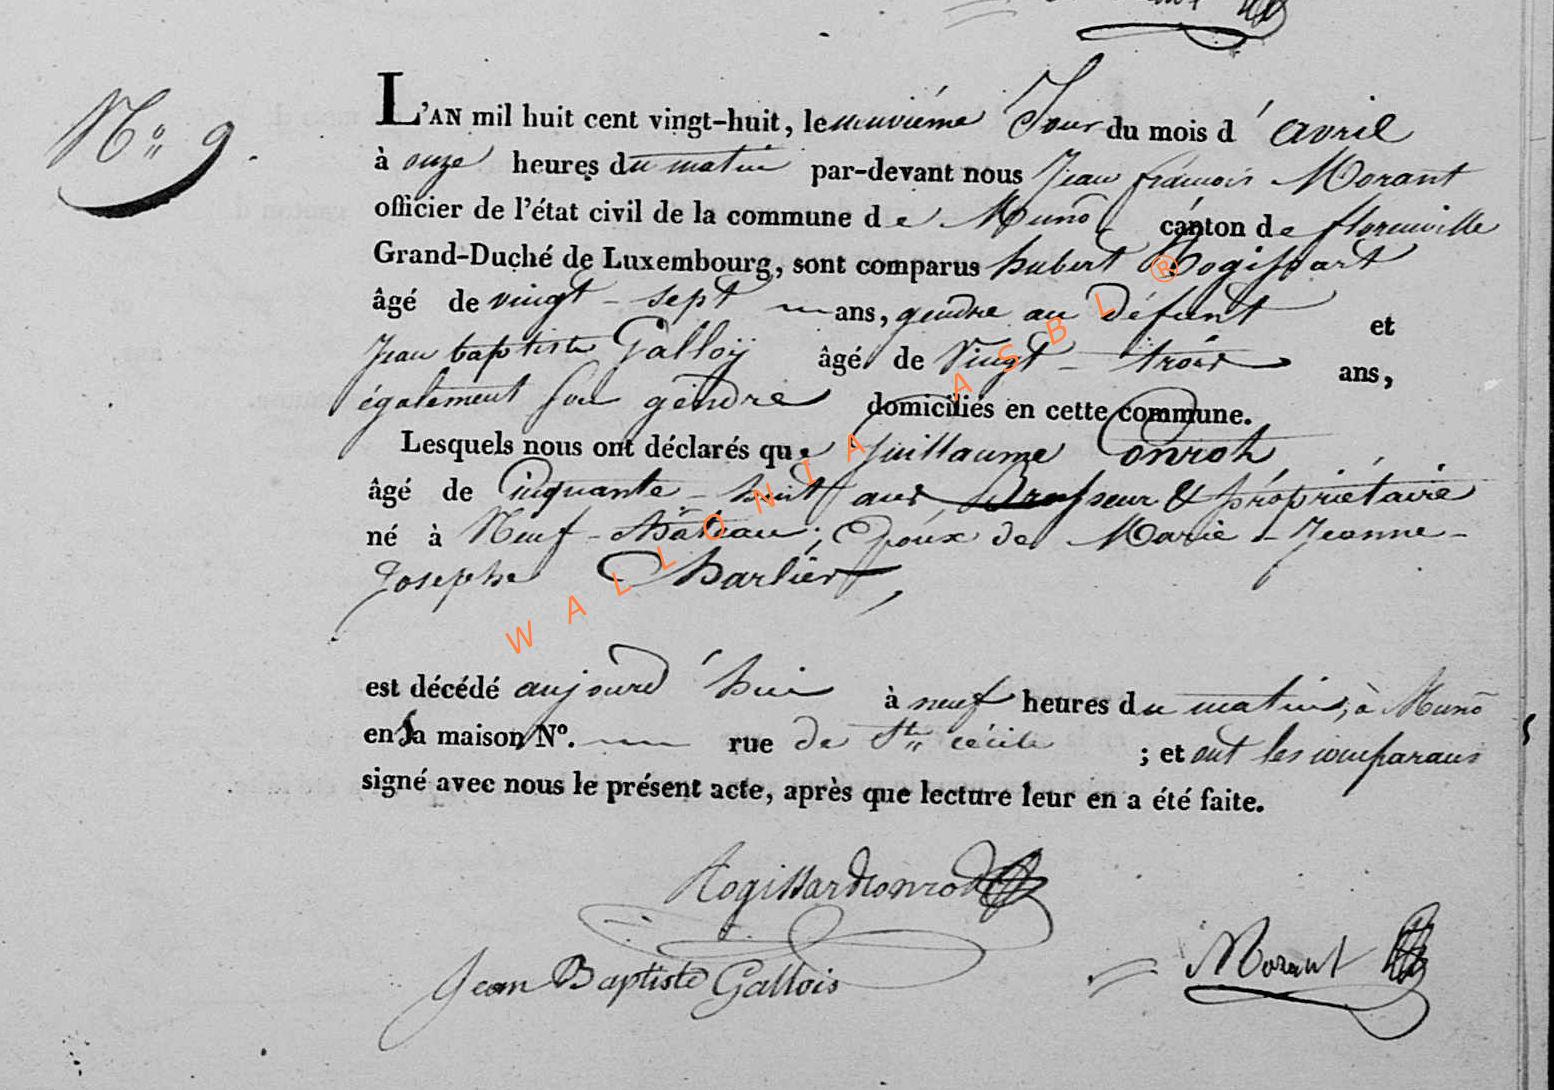 N° 9.
L'AN mil huit cent vingt-huit, le neuviéme Jour du mois d' avril
à onze heures du matin par-devant nous Jean françois Morant
officier de l'état civil de la commune de Muno canton de florenville
Grand-Duché de Luxembourg, sont comparus hubert Rogissart
âgé de vingt-sept ans, gendre au Défunt et
Jean baptiste Galloÿ âgé de Vingt-trois ans,
également son gendre domiciliés en cette commune.
Lesquels nous ont déclarés que Guillaume Conrot
âgé de Cinquante-huit ans, Brasseur & propriétaire
né à Neuf-château; Epoux de Marie-Jeanne-
Josephe Charlier,
est décédé aujourd'hui à neuf heures du matin, à Muno
en sa maison N°. rue de Ste cécile ; et ont les comparans
signé avec nous le présent acte, après que lecture leur en a été faite.
Rogissart Conrod
Jean Baptiste Gallois
Morant
WALLONIA ASBL ®